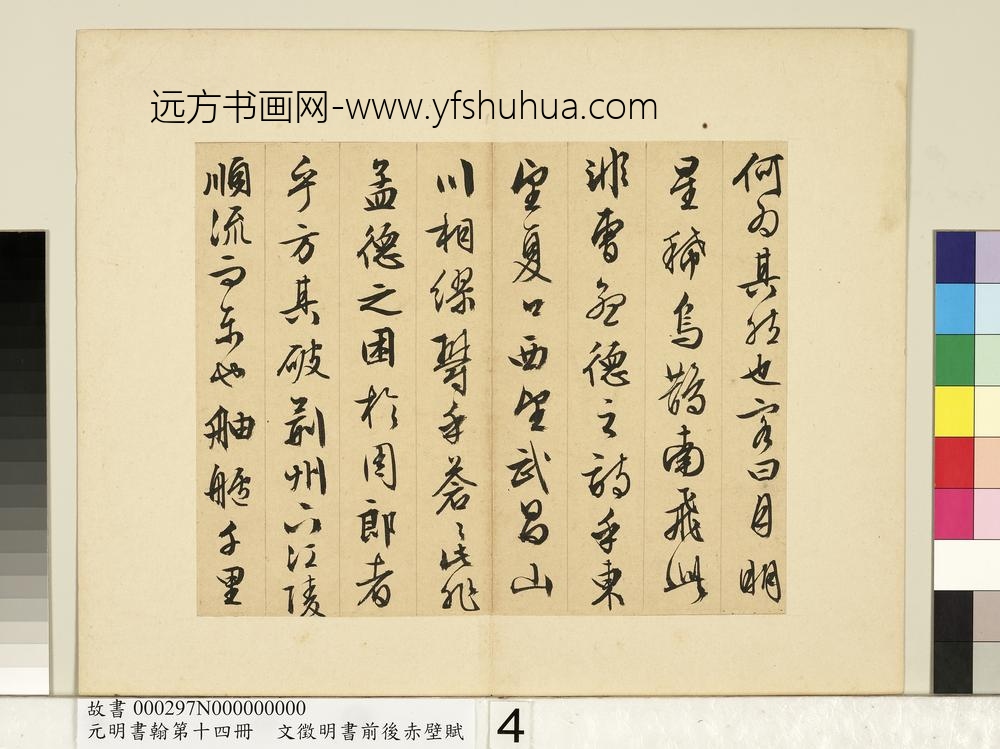 远方书画网-www.yfshuhua.com
何為其然也客曰月明
星稀烏鵲南飛此
非曹孟德之詩乎東
望夏口西望武昌山
川相繆鬱乎蒼〻此非
孟德之困於周郎者
乎方其破荊州下江陵
順流而東也舳艫千里
故書 000297N000000000
元明書翰第十四冊 文徵明書前後赤壁賦
4